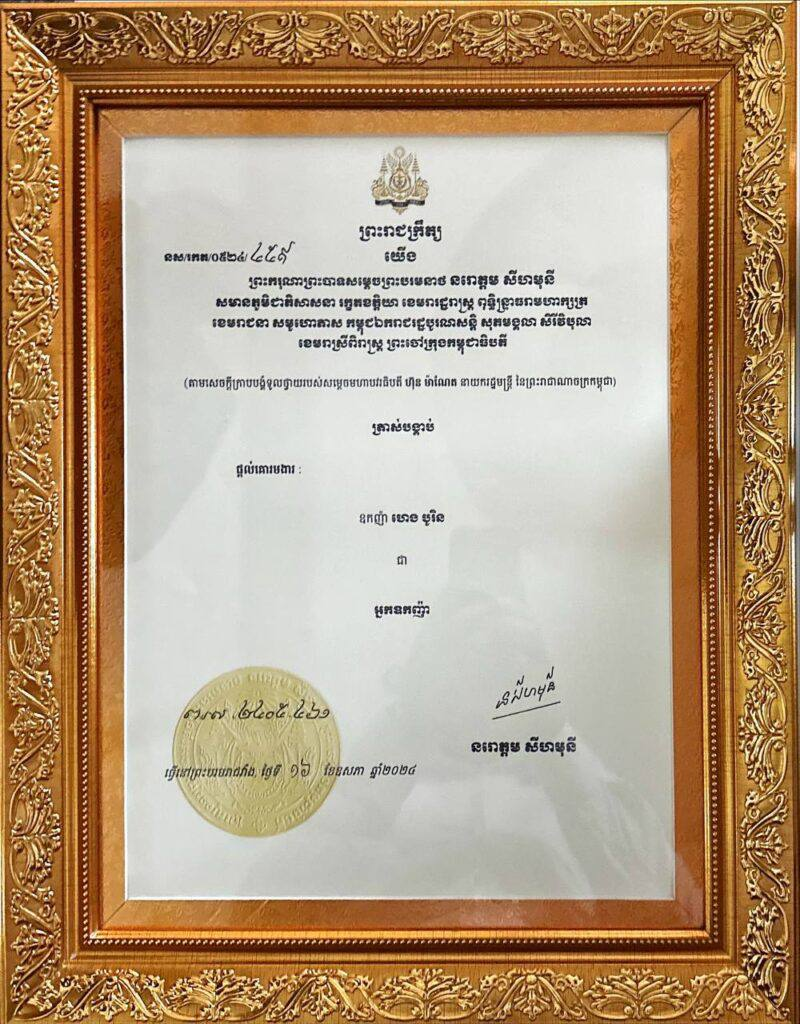 ព្រះរាជក្រឹត្យ
នស/រកត/០៥២៤/ ៤៥៩
យើង
ព្រះករុណាព្រះបាទសម្តេចព្រះបរមនាថ នរោត្តម សីហមុនី
សមានភូមិជាតិសាសនា រក្ខតខត្តិយា ខេមរារដ្ឋរាស្ត្រ ពុទ្ធិន្ទ្រាធរាមហាក្សត្រ
ខេមរាជនា សមូហោភាស កម្ពុជឯករាជរដ្ឋបូរណសន្តិ សុភមង្គលា សិរីវិបុលា
ខេមរាស្រីពិរាស្ត្រ ព្រះចៅក្រុងកម្ពុជាធិបតី
(តាមសេចក្តីក្រាបបង្គំទូលថ្វាយរបស់សម្តេចមហាបវរធិបតី ហ៊ុន ម៉ាណែត នាយករដ្ឋមន្ត្រី នៃព្រះរាជាណាចក្រកម្ពុជា)
ត្រាស់បង្គាប់
ផ្តល់គោរមងារ :
ឧកញ៉ា ហេង បូរិន
ជា
អ្នកឧកញ៉ា
ព.រ.ល ២៤០៥.៤៦១
នរោត្តម សីហមុនី
ធ្វើនៅព្រះបរមរាជវាំង, ថ្ងៃទី ១៦ ខែឧសភា ឆ្នាំ២០២៤